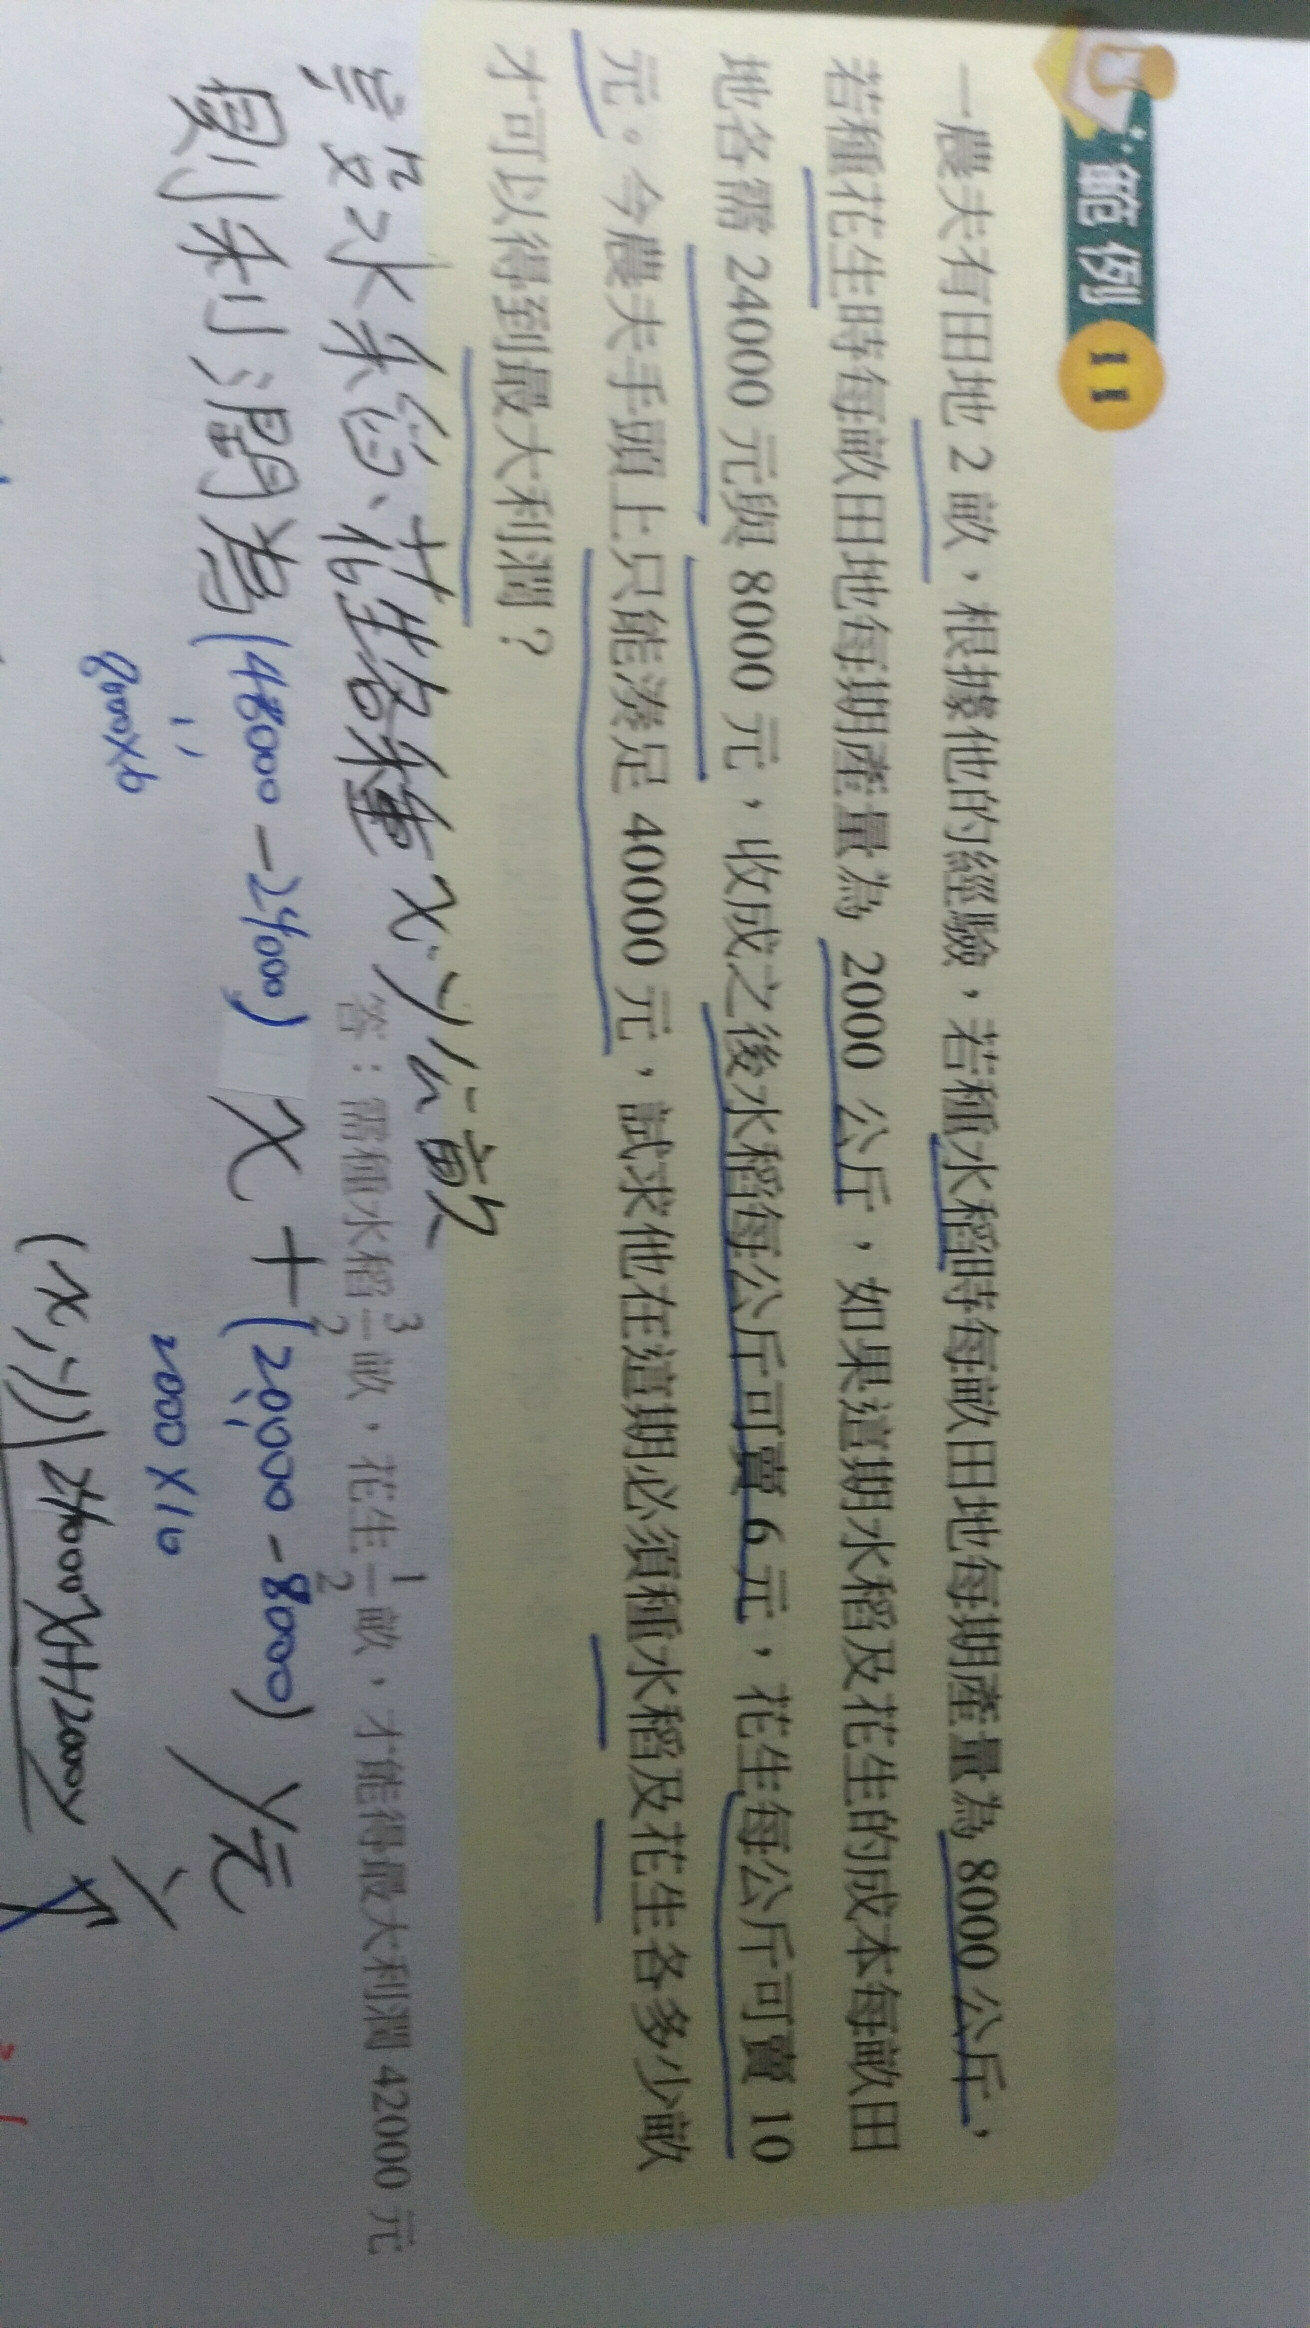 範例 11
一農夫有田地 2 畝，根據他的經驗，若種水稻時每畝田地每期產量為 8000 公斤，
若種花生時每畝田地每期產量為 2000 公斤，如果這期水稻及花生的成本每畝田
地各需 24000 元與 8000 元，收成之後水稻每公斤可賣 6 元，花生每公斤可賣 10
元。今農夫手頭上只能湊足 40000 元，試求他在這期必須種水稻及花生各多少畝
才可以得到最大利潤？
設水稻、花生各種 x、y 畝
答：需種水稻 3/2 畝，花生 1/2 畝，才能得最大利潤 42000 元
則利潤為 (48000 - 24000) x + (20,000 - 8000) y 元
8000×6
2000×10
(x,y) 24000x+12000y